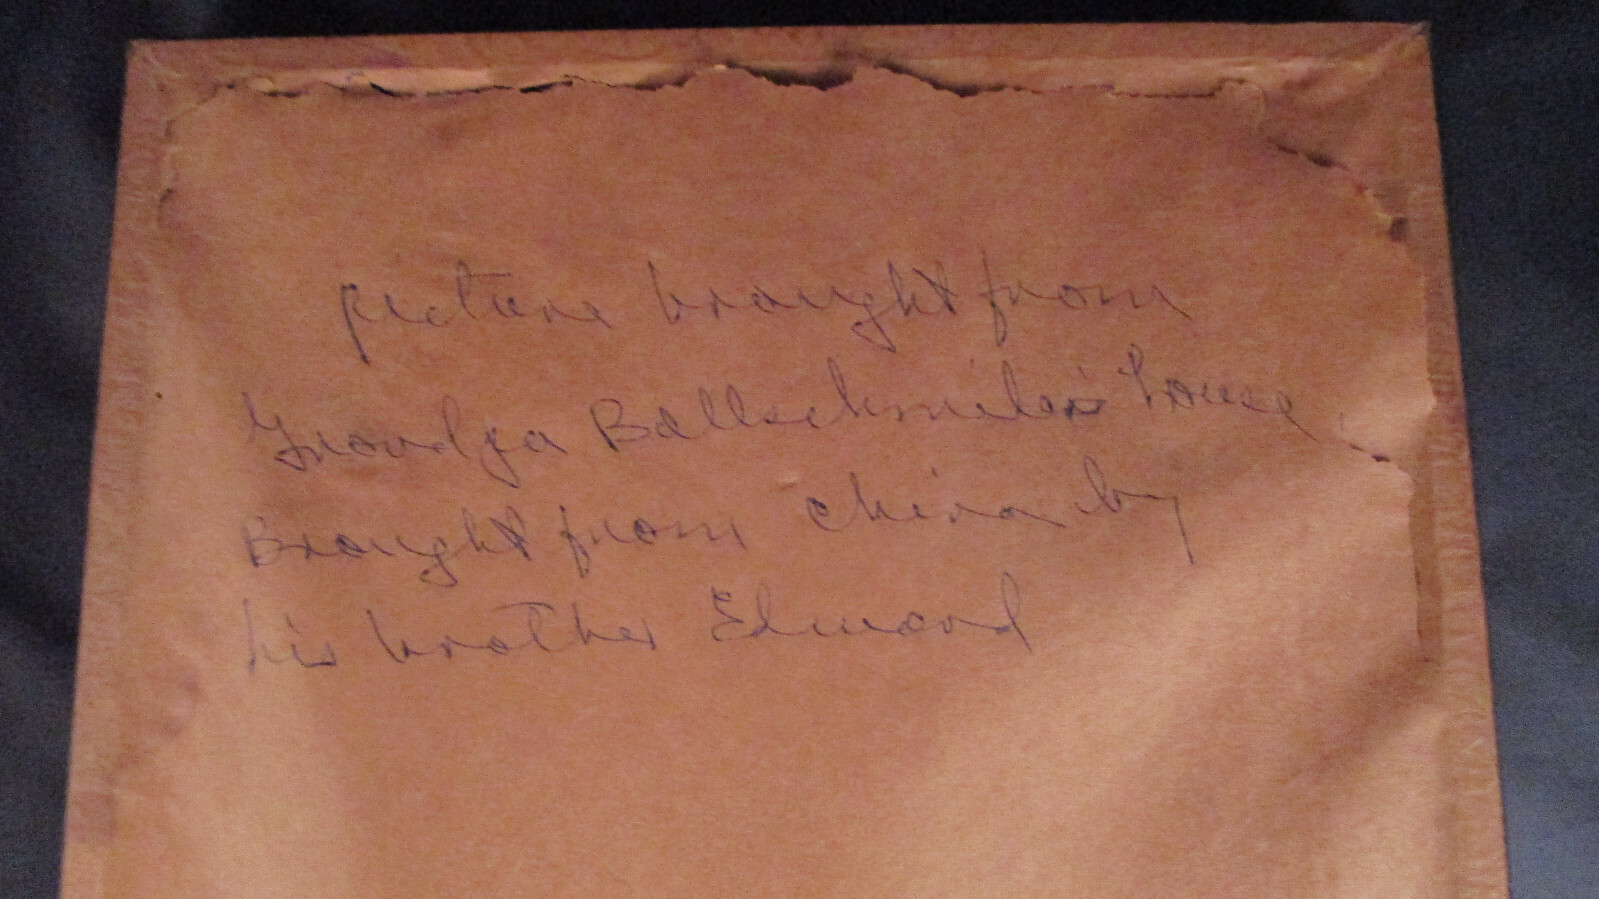 picture brought from
Grandpa Ballschmider's house.
Brought from china by
his brother Edmund